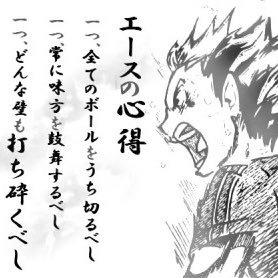 エースの心得
一つ、全てのボールをうち切るべし
一つ、常に味方を鼓舞するべし
一つ、どんな壁も打ち砕くべし